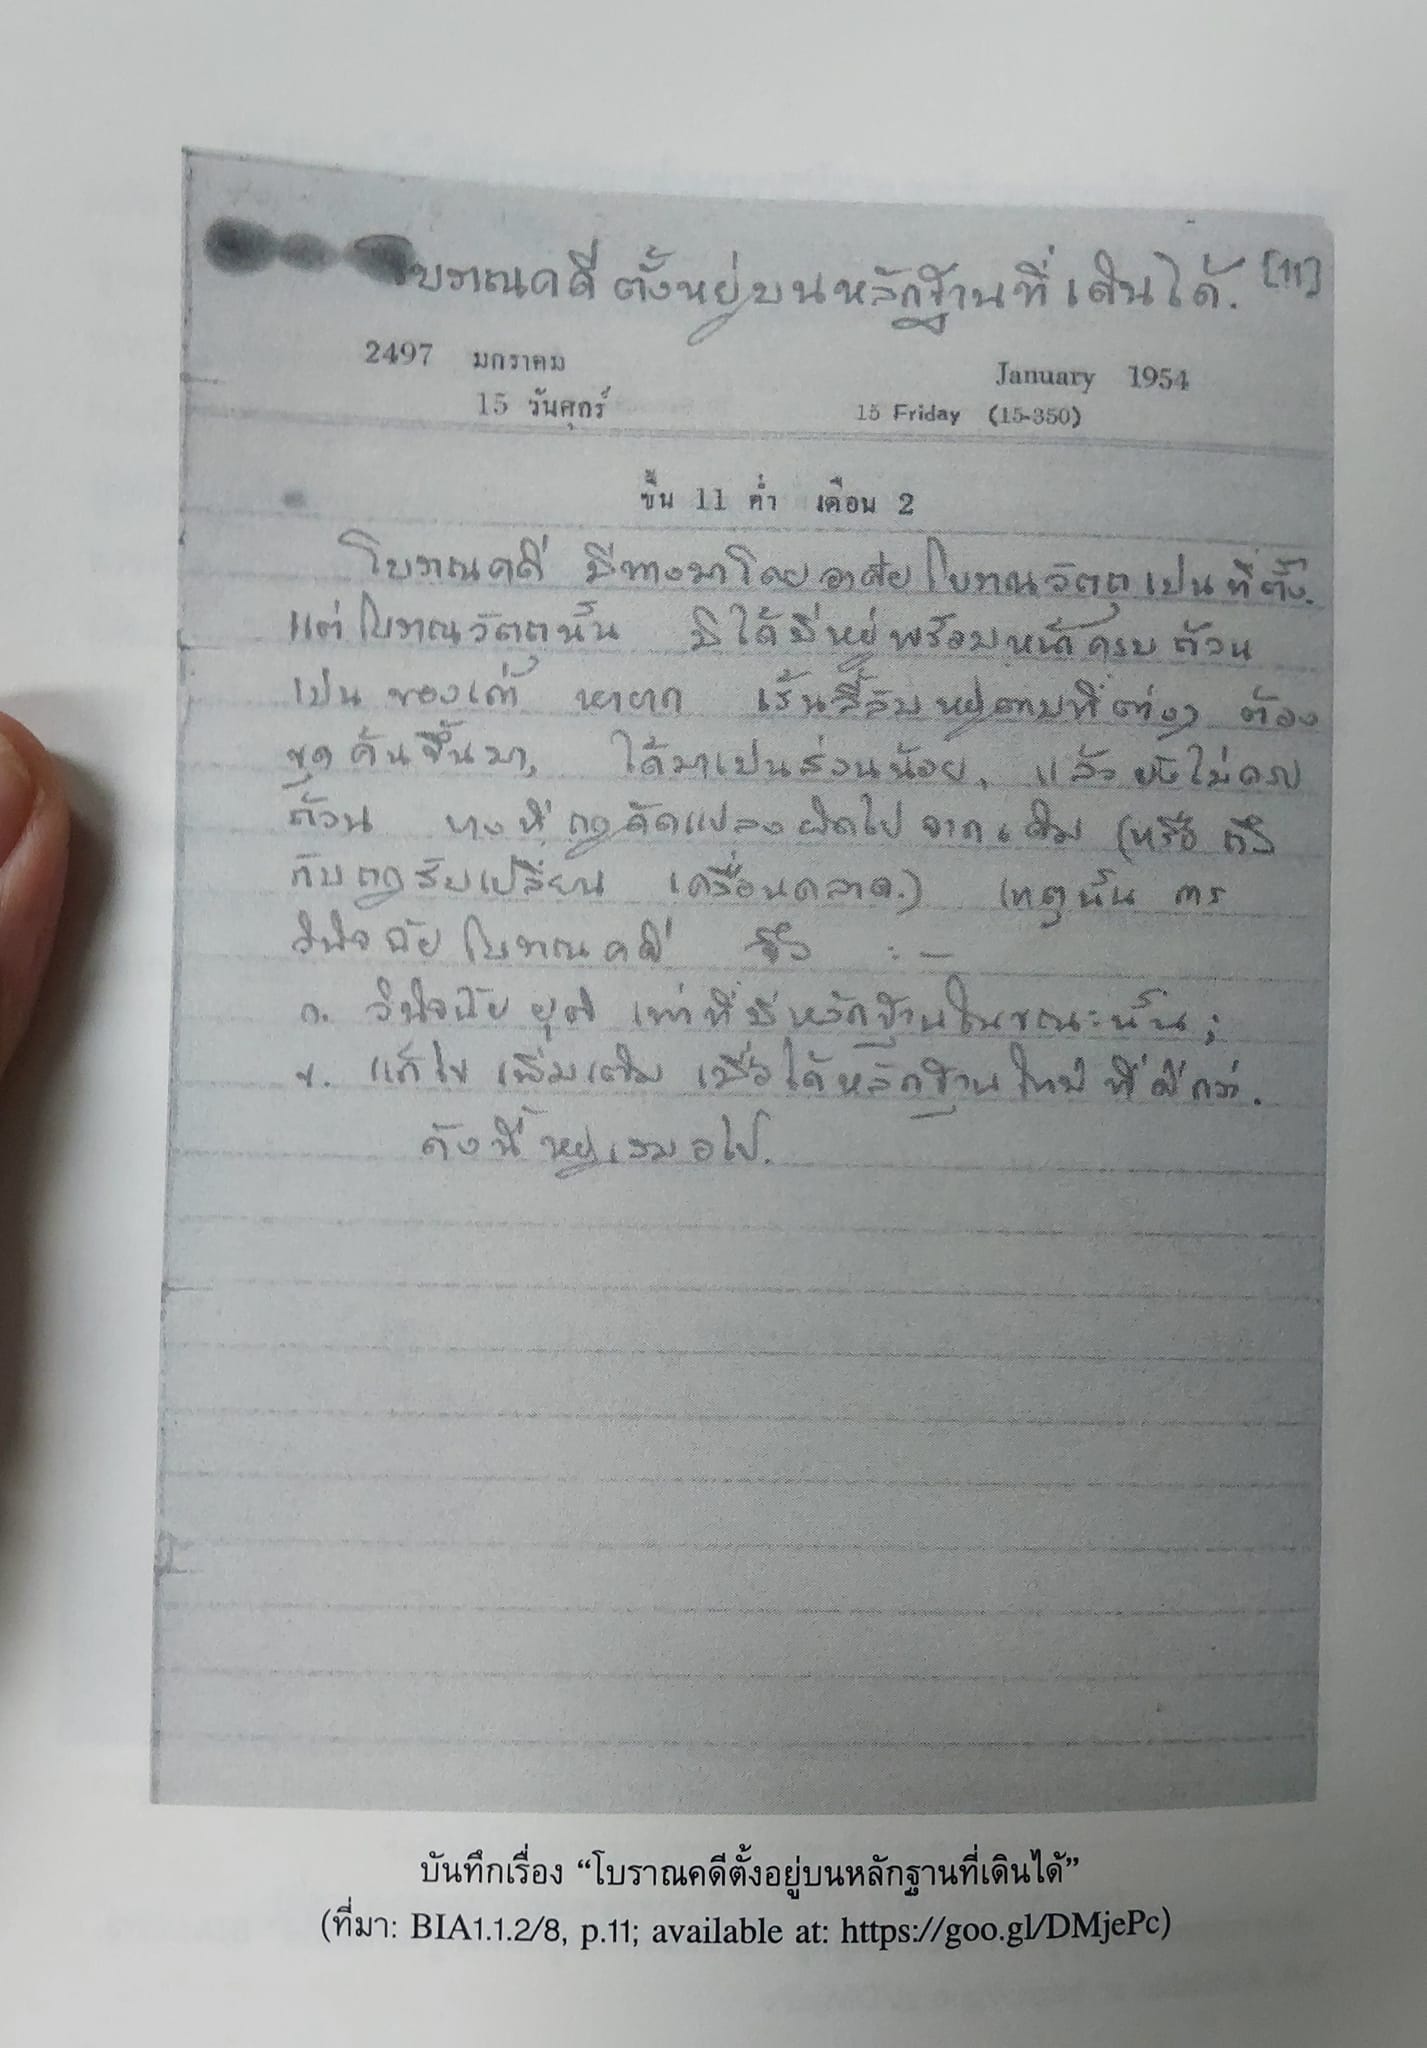 โบราณคดี ตั้งหยู่บนหลักฐานที่เดินได้. [11]
2497 มกราคม
January 1954
15 วันศุกร์
15 Friday (15-350)
ขึ้น 11 ค่ำ เดือน 2
โบราณคดี มีทางมาโดยอาศัยโบราณวัตถุเปนที่ตั้ง.
แต่โบราณวัตถุนั้น มิได้มีหยู่พร้อมหน้าครบถ้วน
เปนของเก่า หายาก เร้นลี้ลับหยู่ตามที่ต่างๆ ต้อง
ขุดค้นขึ้นมา, ได้มาเปนส่วนน้อย, แล้วยังไม่ครบ
ถ้วน บางทีถูกดัดแปลงผิดไปจากเดิม (หรือถึง
กับถูกสับเปลี่ยน เคลื่อนคลาด.) เหตุนั้น การ
วินิจฉัยโบราณคดี จึง :—
ก. วินิจฉัยยุติ เท่าที่มีหลักฐานในขณะนั้น;
ข. แก้ไข เพิ่มเติม เมื่อได้หลักฐานใหม่ ที่ดีกว่า.
ดังนี้ หยู่เสมอไป.
บันทึกเรื่อง “โบราณคดีตั้งอยู่บนหลักฐานที่เดินได้”
(ที่มา: BIA1.1.2/8, p.11; available at: https://goo.gl/DMjePc)